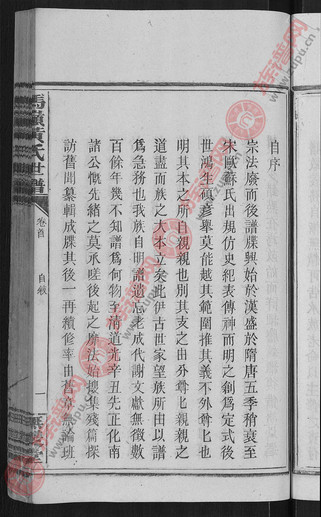 自序
宗法廢而後譜牒興始於漢盛於隋唐五季稍衰至
宋歐蘇氏出規仿史紀表傳神而明之創為定式後
世鴻生碩彥舉莫能越其範圍推其義不外尊匕也
明其本之所自親親也別其支之由分尊匕親親之
道盡而族之大本立矣此伊古世家望族所由以譜
為急務也我族自明譜遺忘老成代謝文獻無徵數
百餘年幾不知譜為何物
道光辛丑先正化南
諸公慨先緒之莫承嗟後起之靡法始搜集殘篇探
訪舊聞纂輯成牒其後一再續修率由舊章無論班
黃氏世譜
卷首
自敘
一